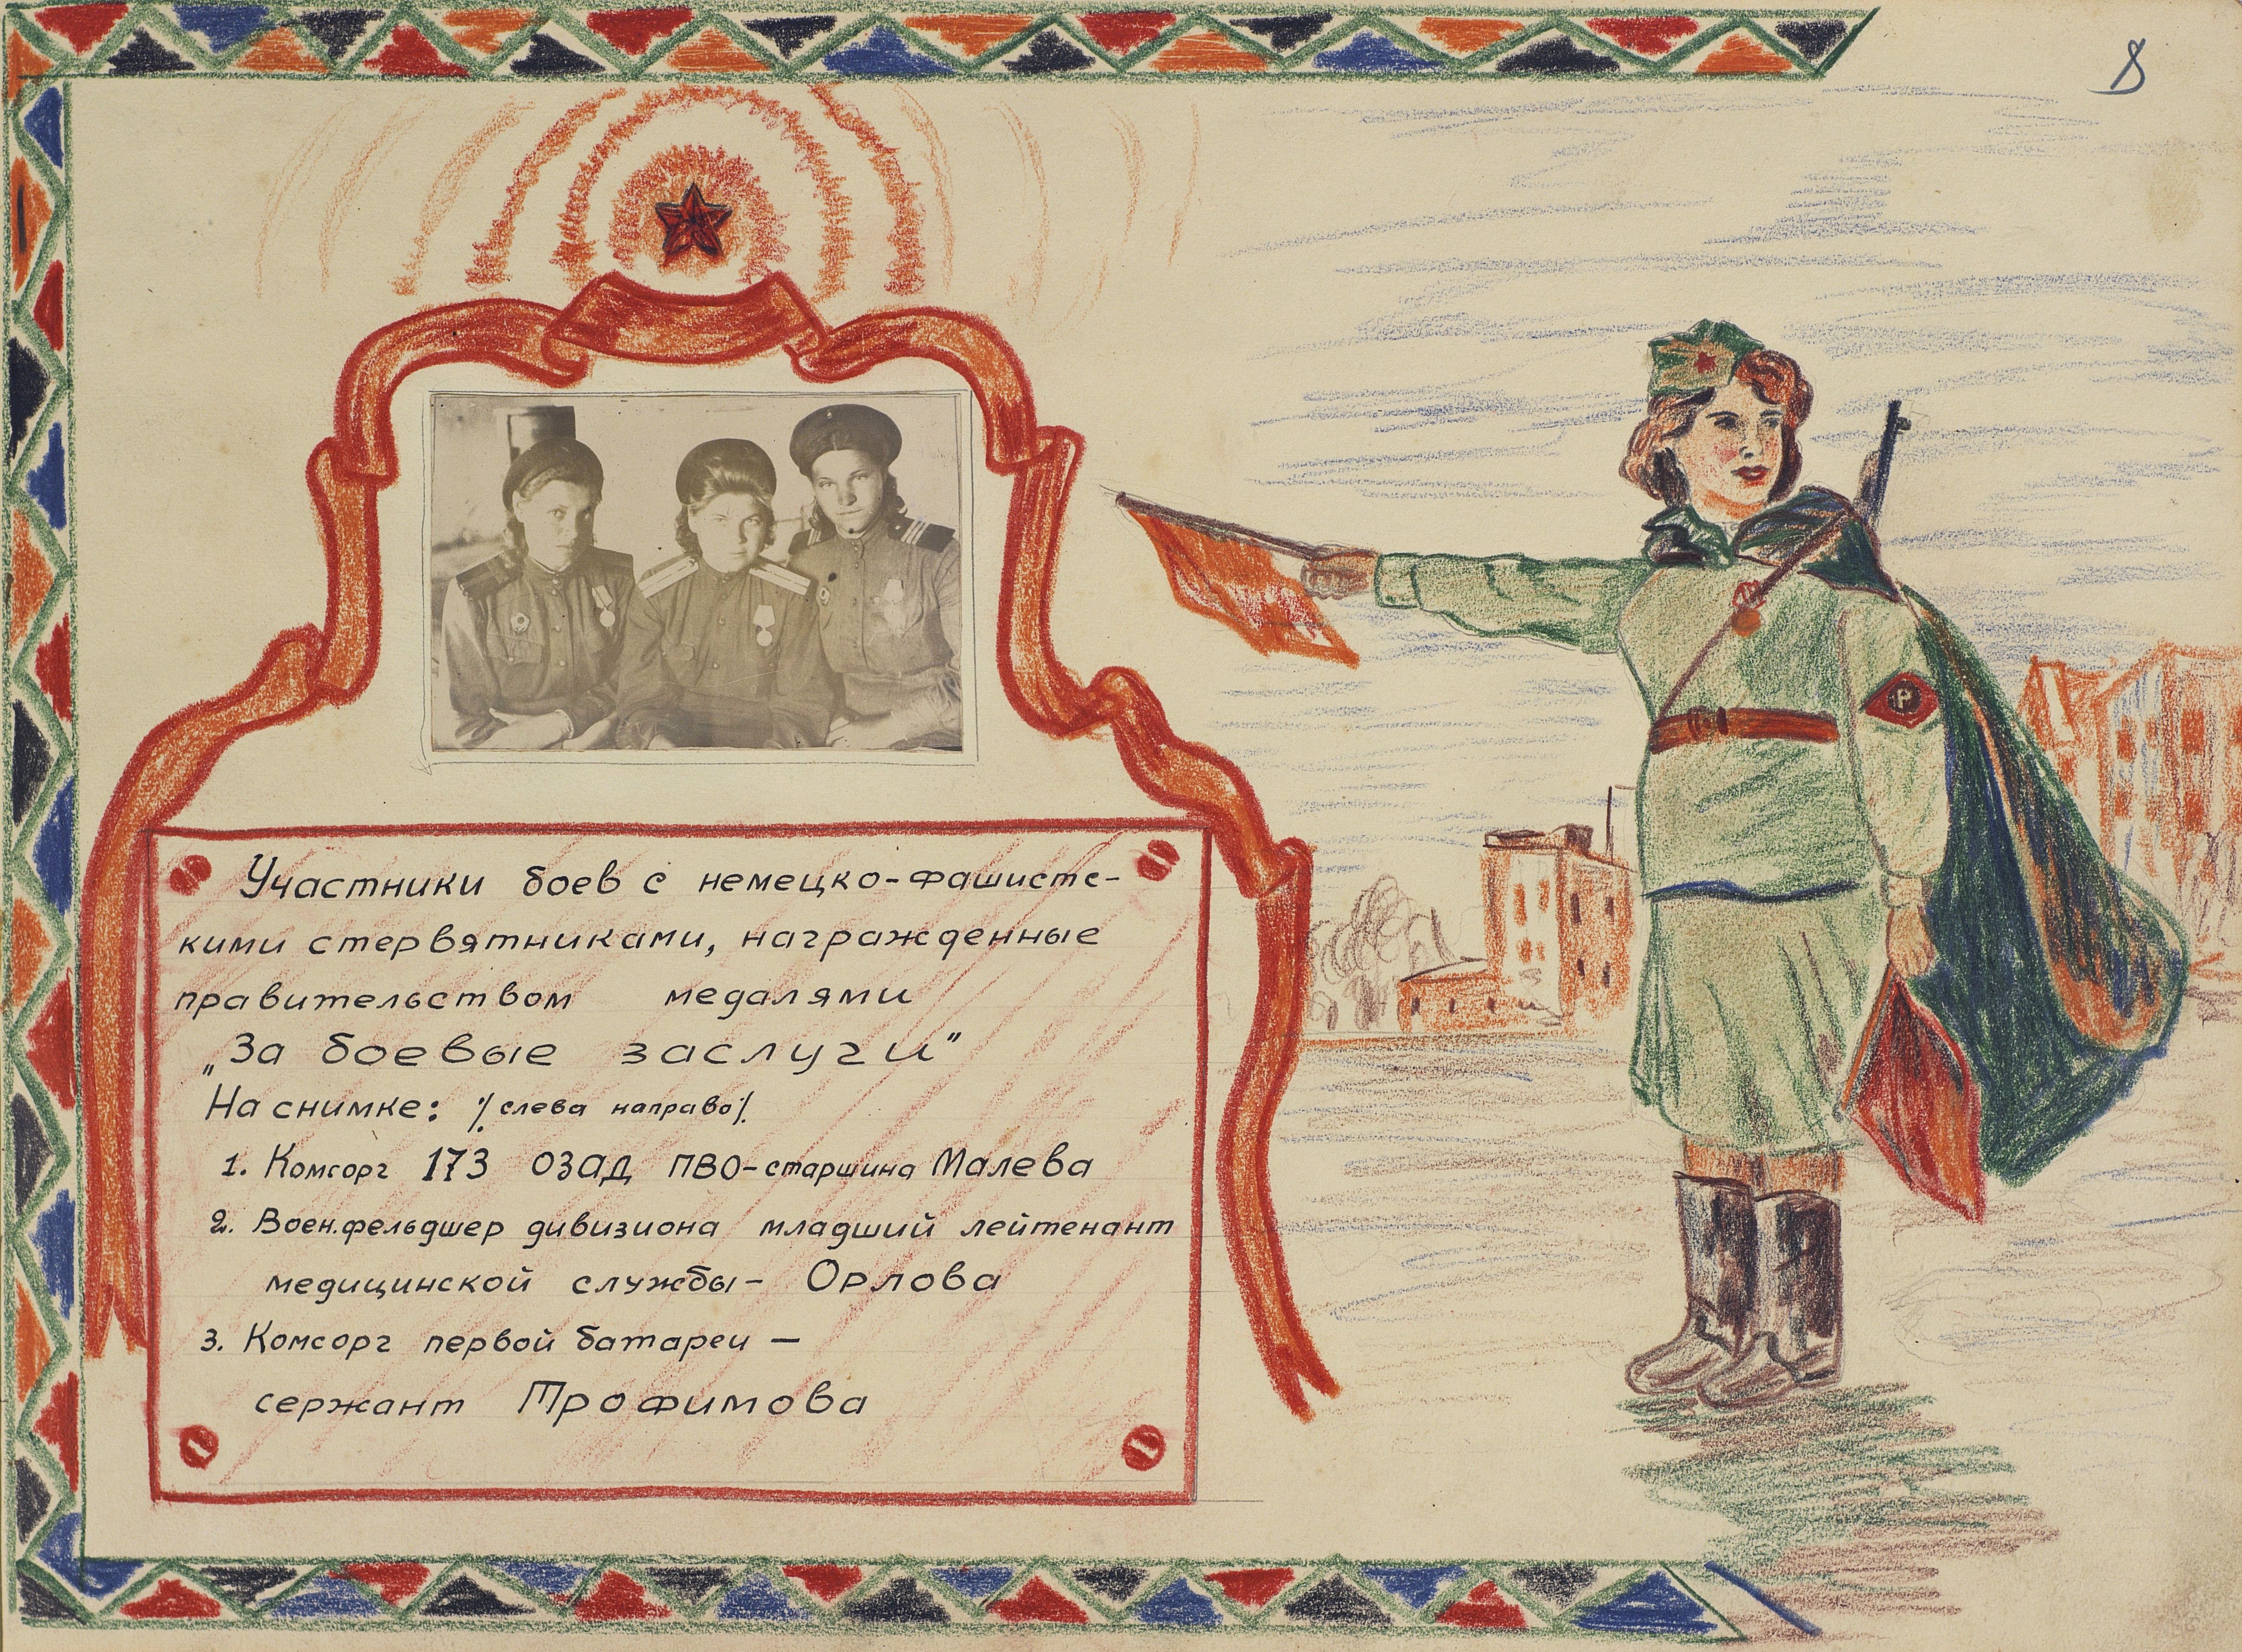 8
Участники боев с немецко-фашистс-
кими стервятниками, награжденные
правительством медалями
„За боевые заслуги"
На снимке: ⁒ слева направо ⁒
1. Комсорг 173 ОЗАД ПВО-старшина Малева
2. Воен.фельдшер дивизиона младший лейтенант
медицинской службы- Орлова
3. Комсорг первой батареи —
сержант Трофимова
Р